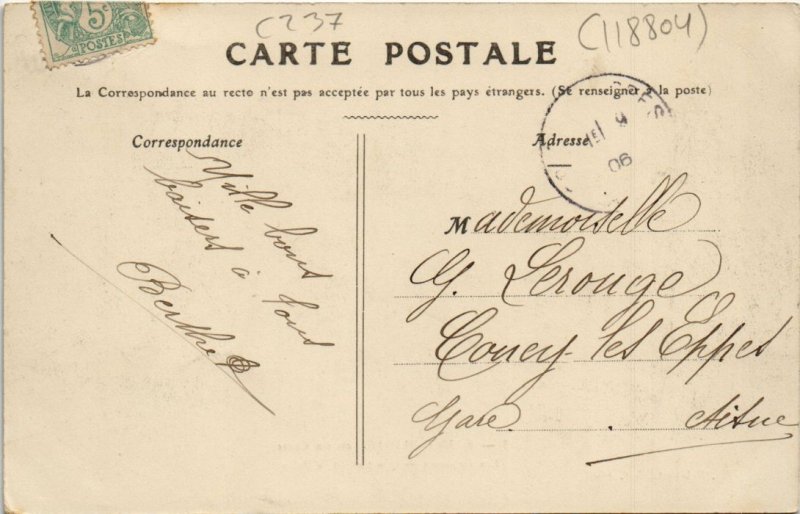 5c
POSTES
C237
(118804)
CARTE POSTALE
La Correspondance au recto n'est pas acceptée par tous les pays étrangers. (Se renseigner à la poste)
Correspondance
Mille bons
baisers à
tous
Berthe
Adresse
9
06
Mademoiselle
G. Lerouge
Coucy-les Eppes
Gare. Aisne